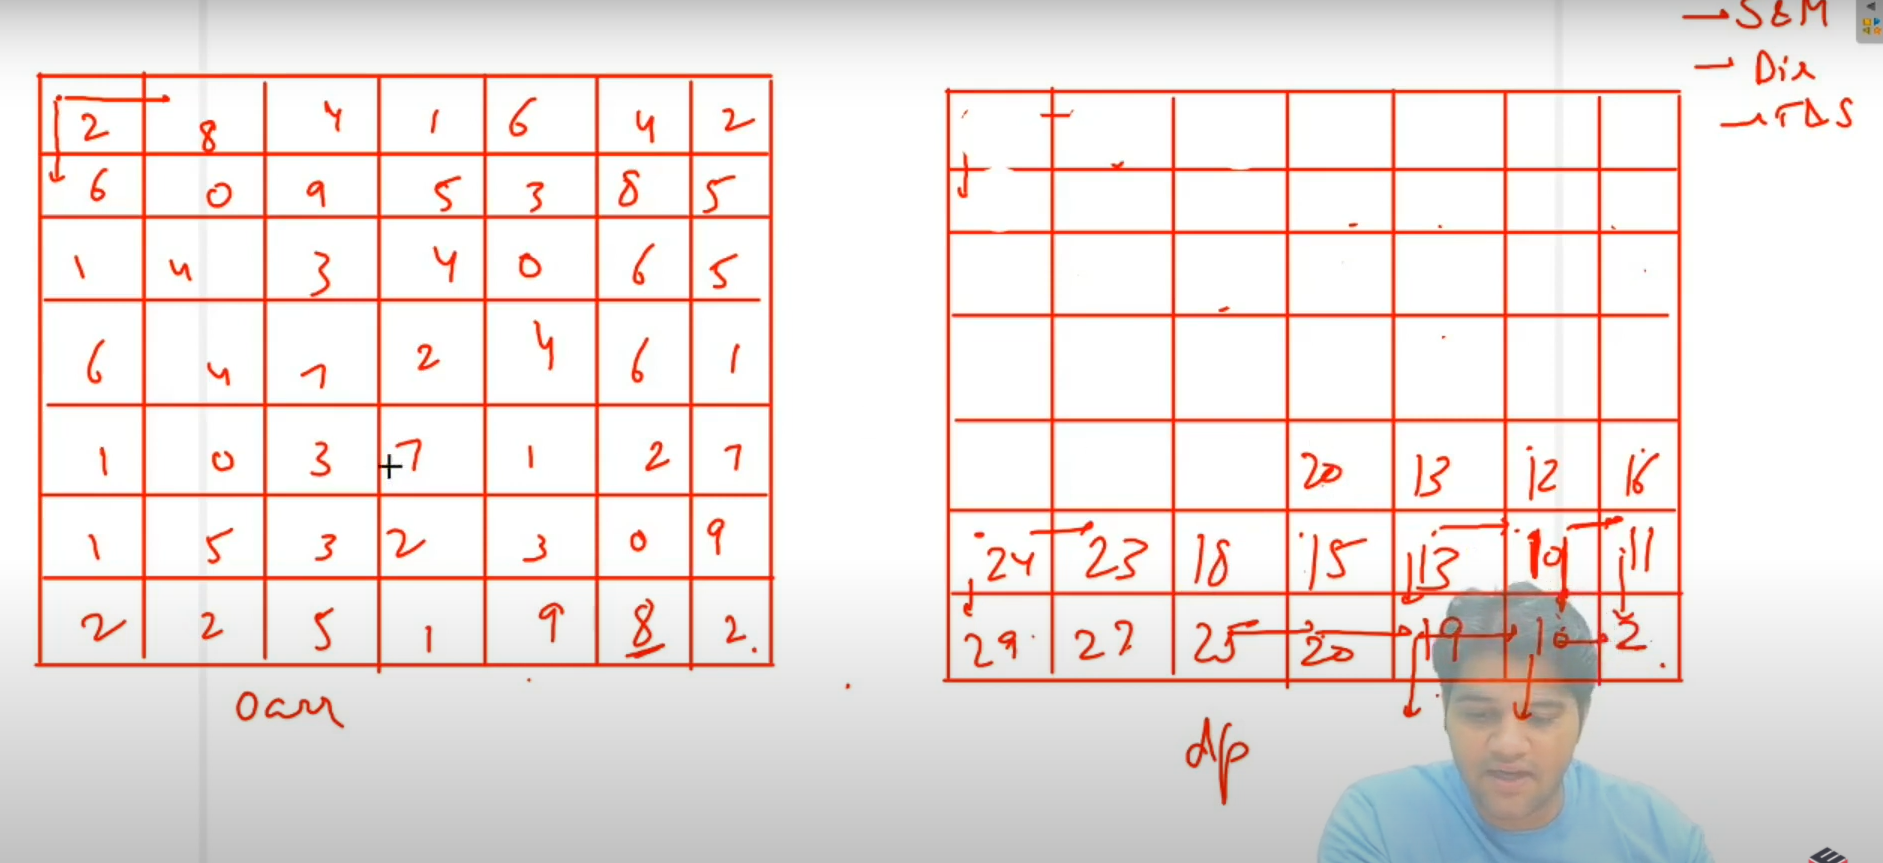 → S&M
→ Dir
→ TDS
2 8 4 1 6 4 2
6 0 9 5 3 8 5
1 4 3 4 0 6 5
6 4 7 2 4 6 1
1 0 3 7 1 2 7
1 5 3 2 3 0 9
2 2 5 1 9 8 2.
oarr
20 13 12
24 23 18 15 13 10 11
29 27 25 20 19 10 2.
dp